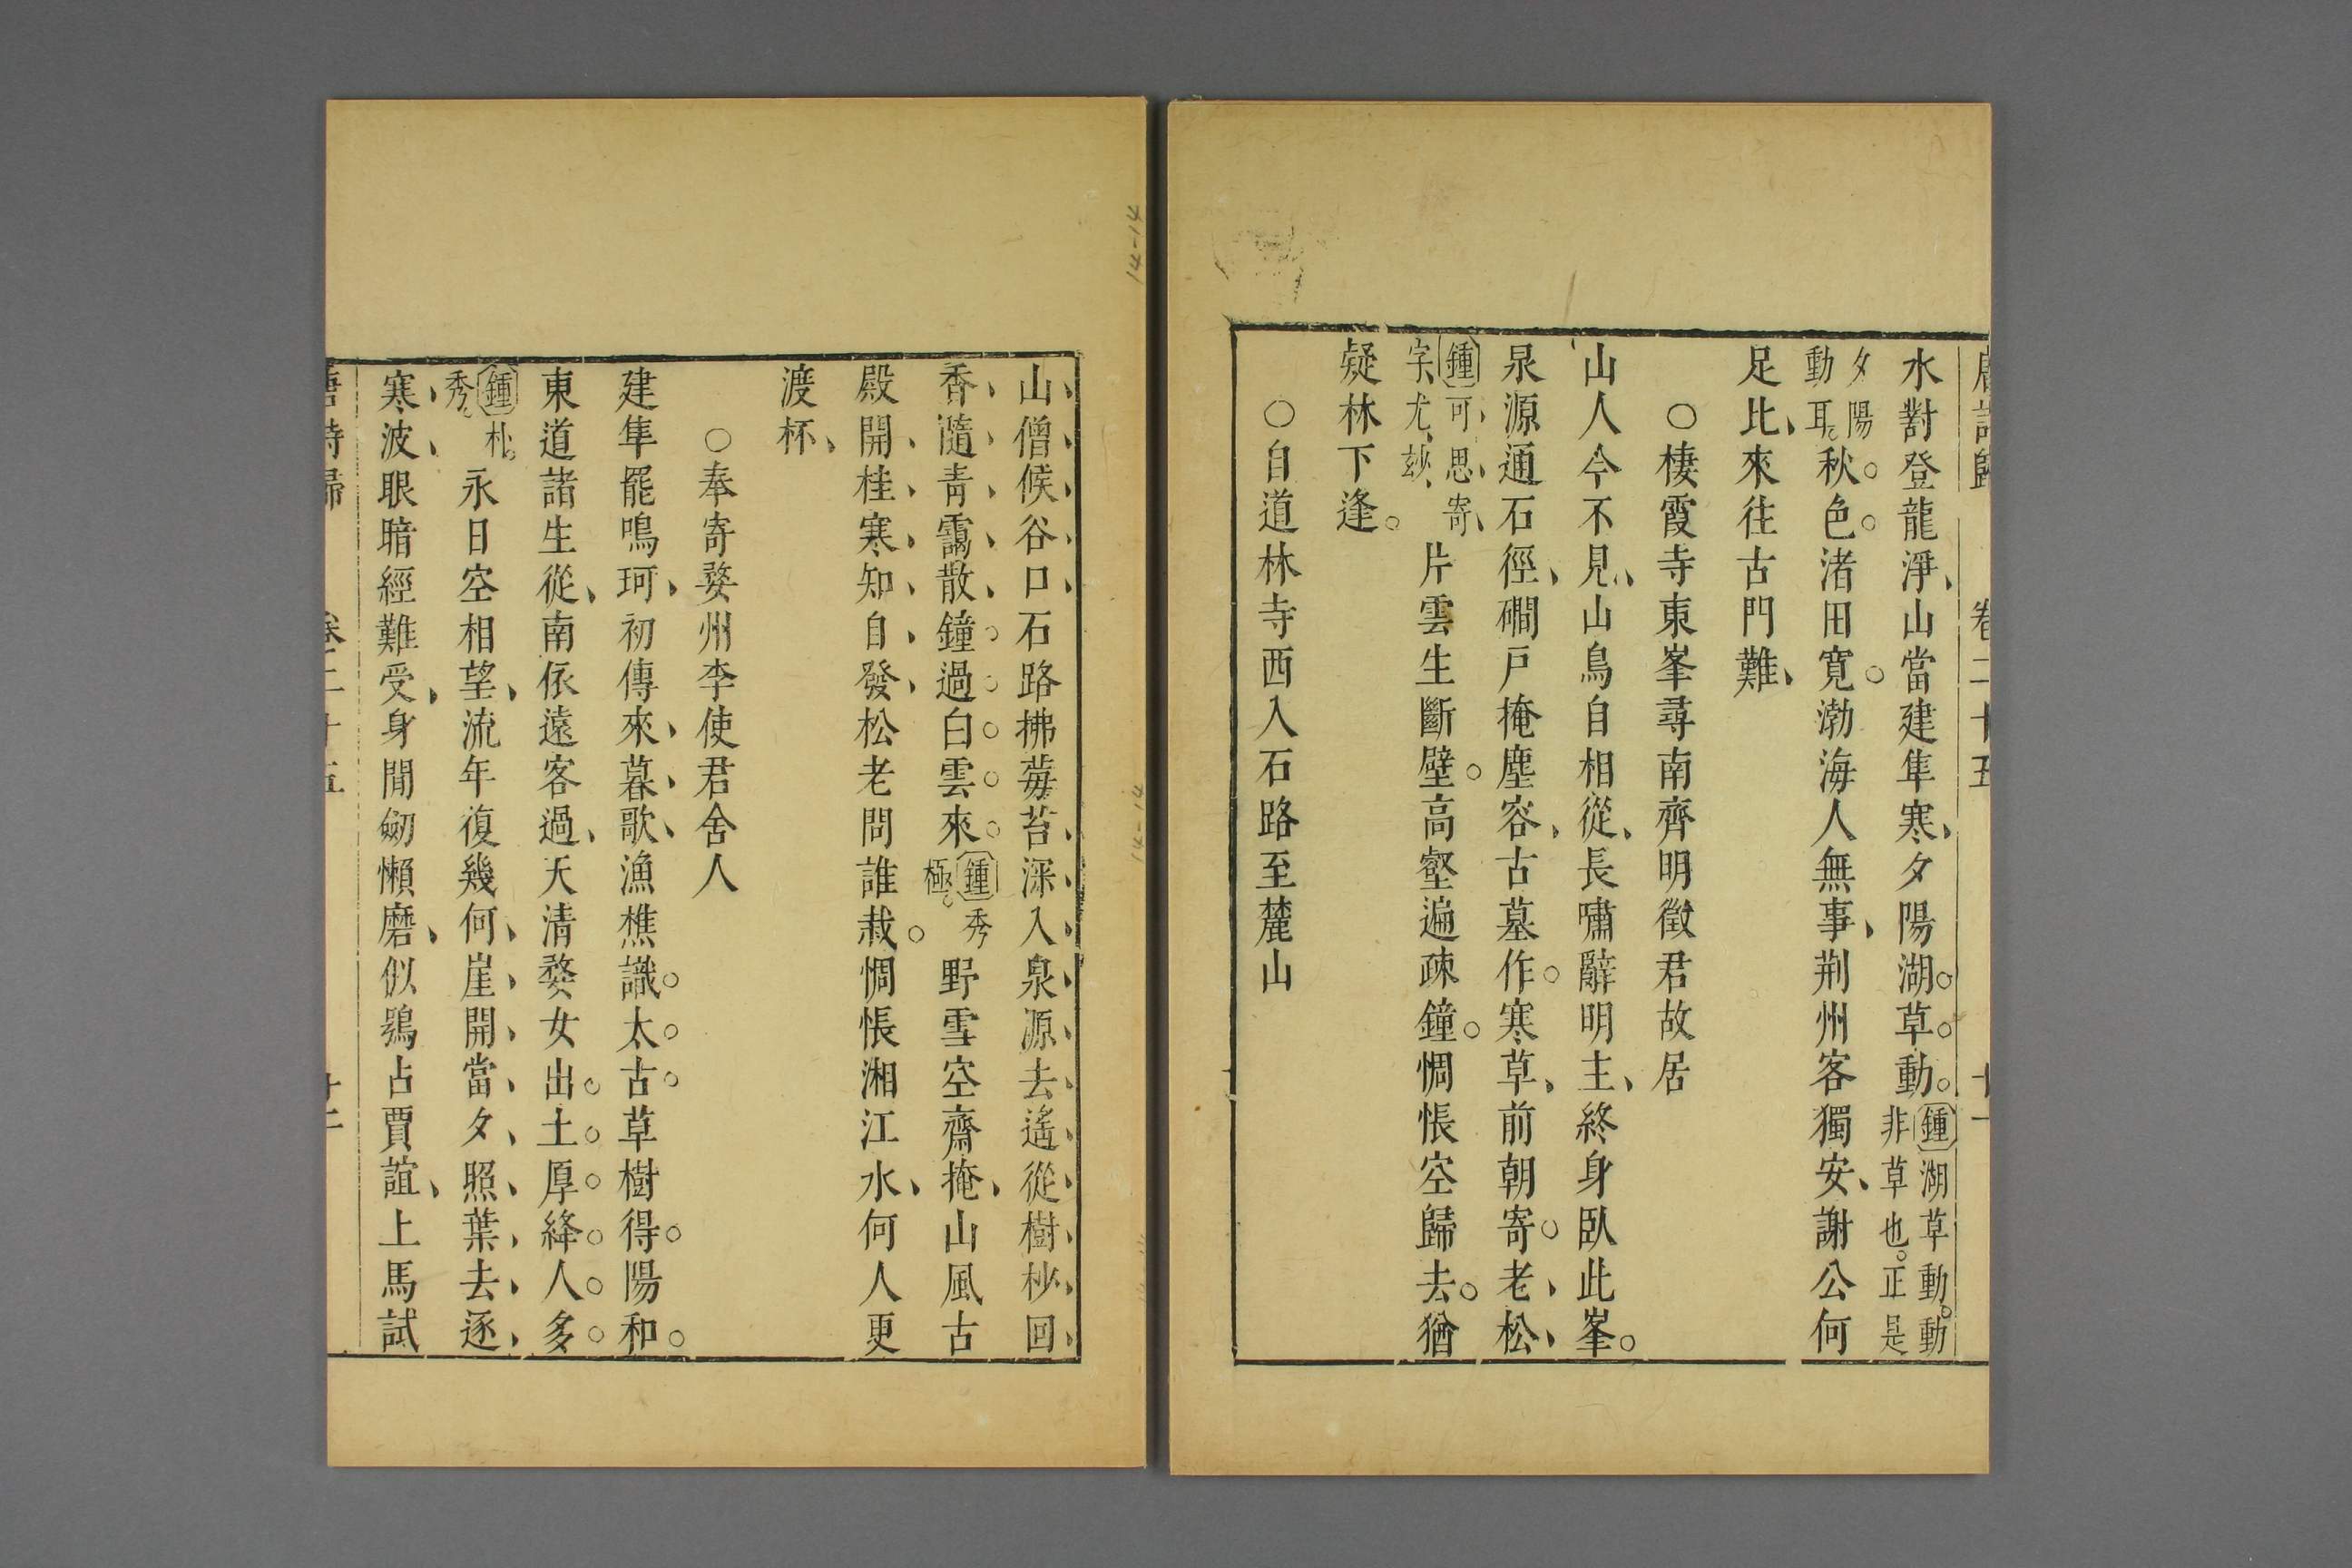 水對登龍淨、山當建隼寒、夕陽湖。草。動。鍾湖草動。動非草也。正是
夕陽動耳。秋。色。渚田寬。渤海人無事、荆州客獨安、謝公何
足比、來往古門難、
○棲霞寺東峯尋南齊明徵君故居
山人今不見、山鳥自相從、長嘯辭明主、終身臥此峯。
泉源通石徑、磵戸掩塵容、古墓作。寒草、前朝寄。老、松、
鍾可、思、寄、字、尤、玅、片雲生斷壁。高壑遍疎鐘。惆悵空歸去。猶
疑林下逢。
○自道林寺西入石路至麓山
山、僧、候、谷、口、石路拂莓苔、深、入、泉、源、去、遙、從、樹、杪、回、
香、隨、青、靄、散、鐘。過。白。雲。來。鍾秀極。野雪空齋掩、山風古
殿開、桂、寒、知、自、發、松老問誰栽。惆悵湘江水、何人更
渡杯、
○奉寄婺州李使君舍人
建隼罷鳴珂、初傳來、暮、歌、漁樵識。太。古。草樹得。陽和。
東道諸生從、南依遠客過、天清婺女出。土。厚。絳。人。多。
鍾朴。秀。永日空相望、流年復幾何、崖、開、當、夕、照、葉、去、逐、
寒、波、眼暗經難受、身閒劒懶磨、似鴞占賈誼、上馬試
唐詩歸 卷二十五